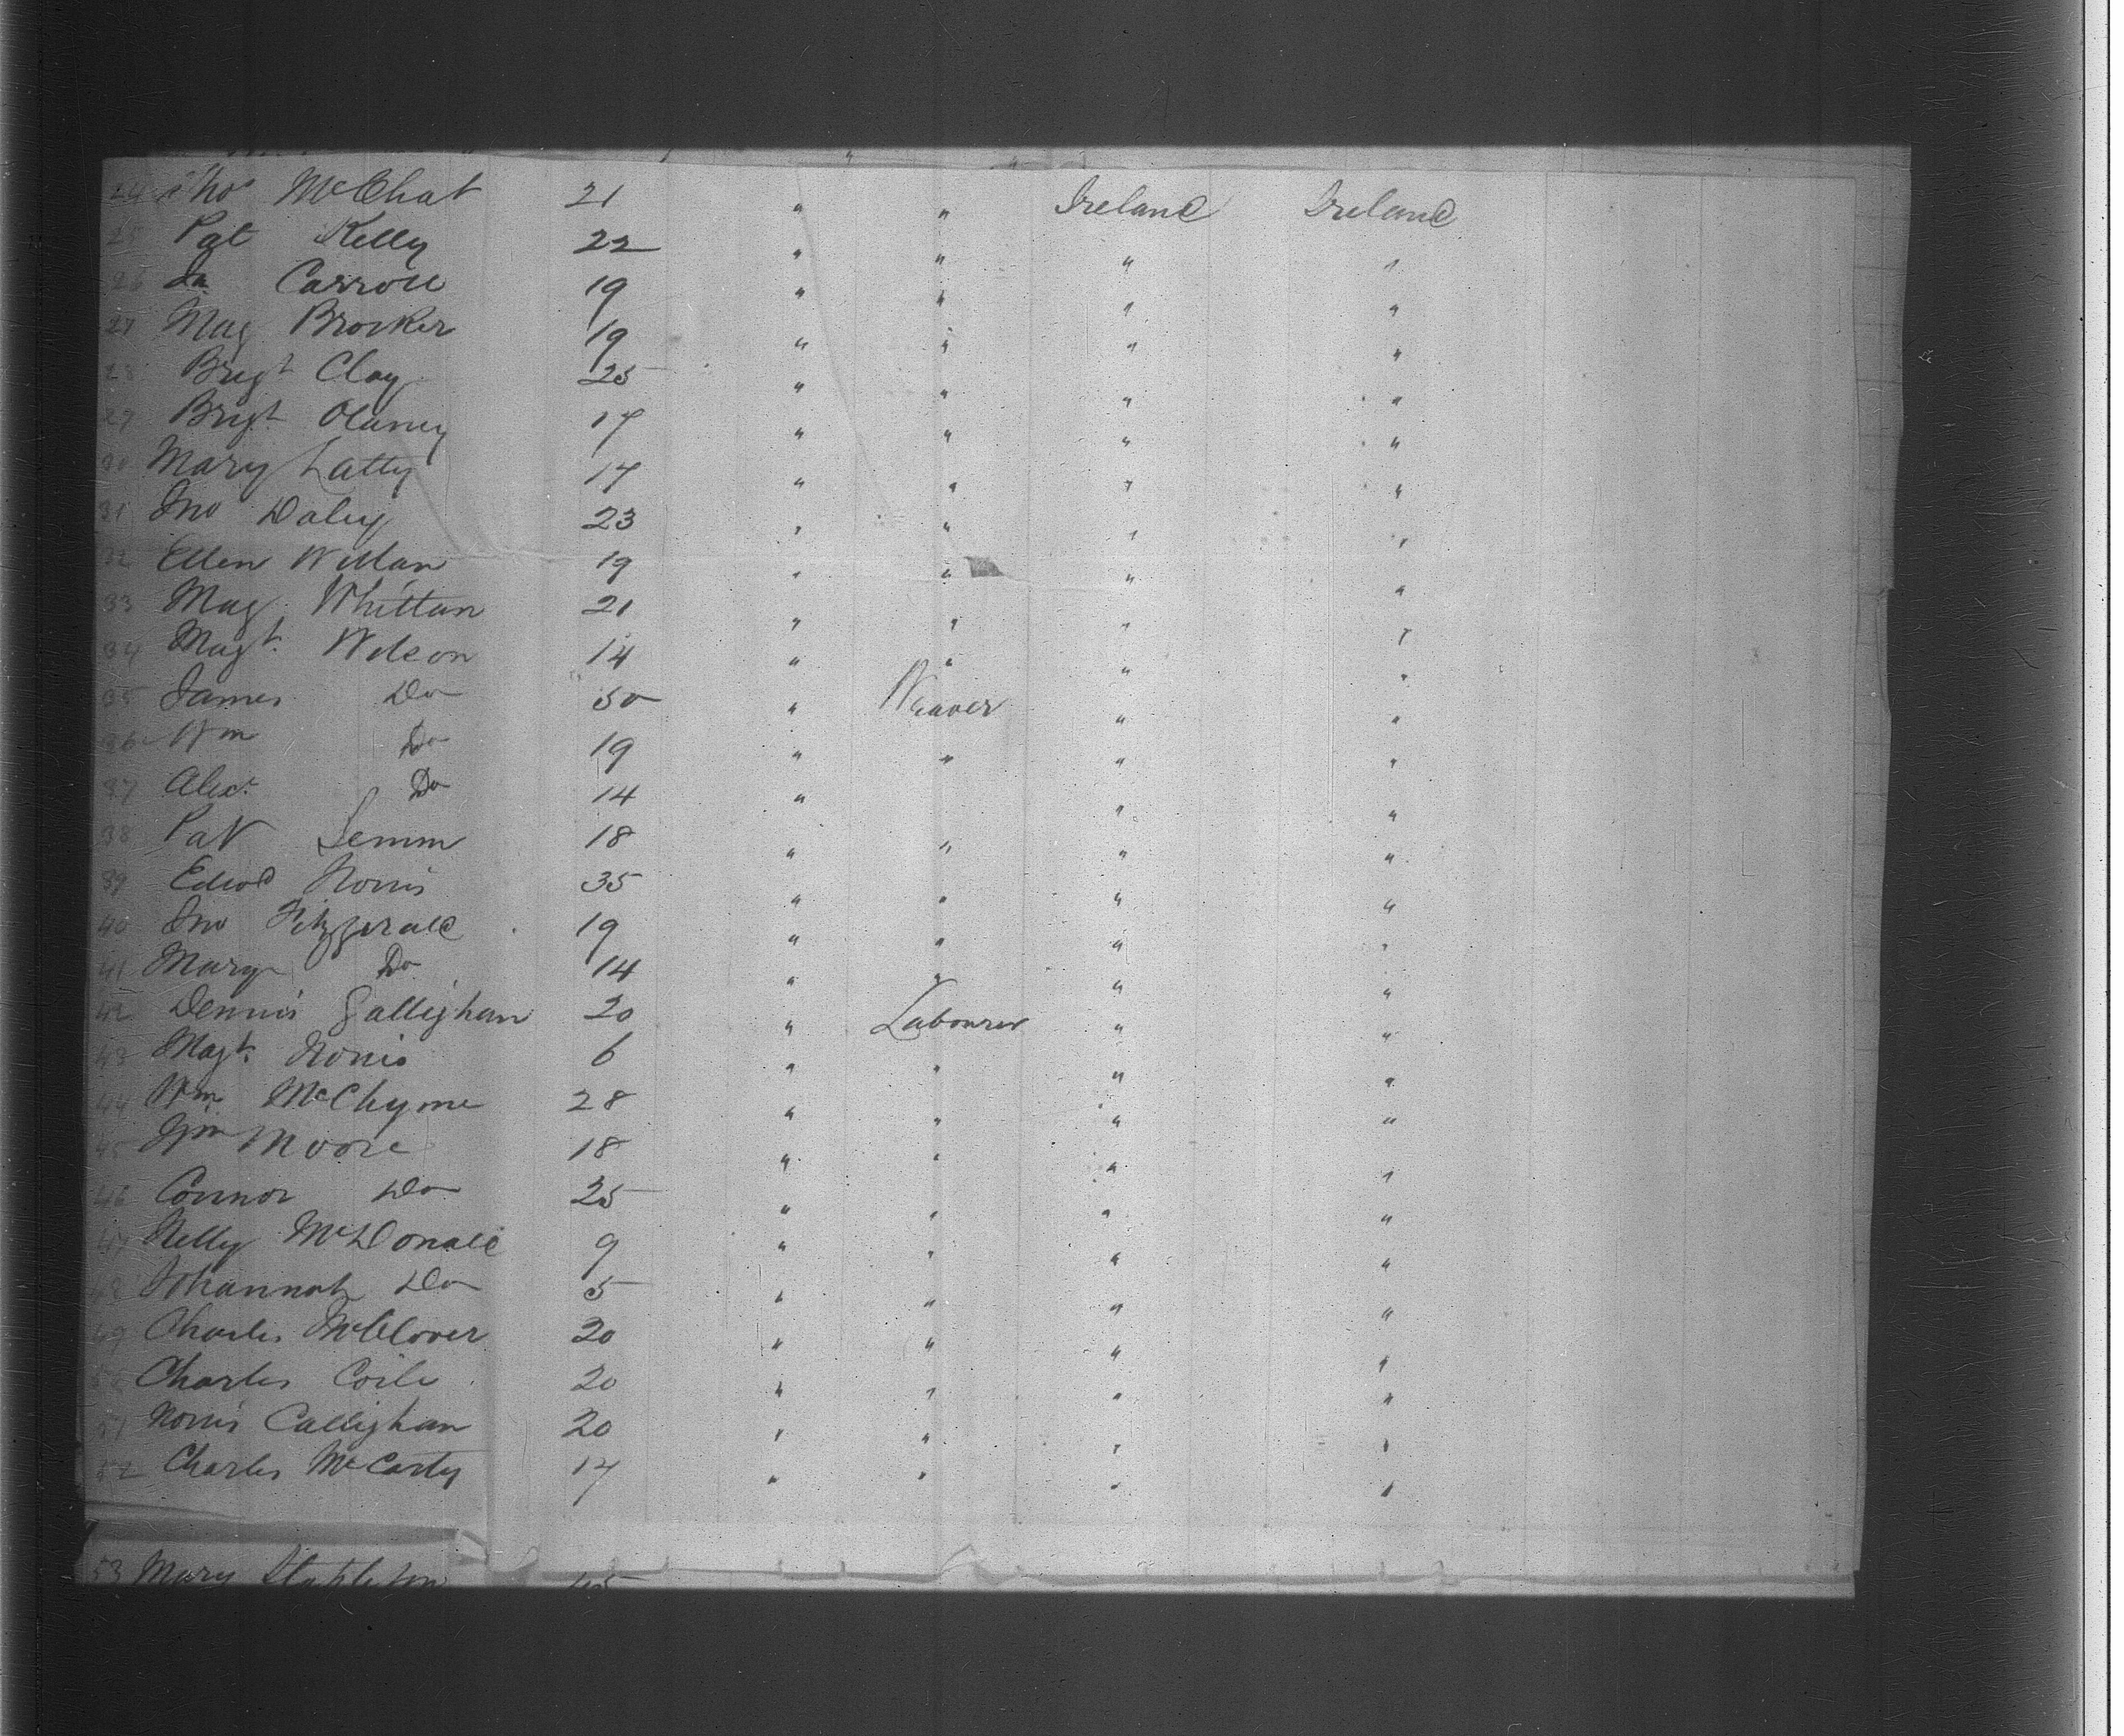 24 Thos McChat 21 " " Ireland Ireland
25 Pat Kelly 22 " " " "
26 Do Carroll 19 " " " "
27 Mag Brocker 19 " " " "
28 Brigt Clay 25 " " " "
29 Brigt Olaney 17 " " " "
30 Mary Latty 17 " " " "
31 Jno Daley 23 " " " "
32 Ellen Willan 19 " " " "
33 Mag. Whittan 21 " " " "
34 Magt. Wilson 14 " " " "
35 James Do 50 " Weaver " "
36 Wm Do 19 " " " "
37 Alexr Do 14 " " "
38 Pat Lemm 18 " " " "
39 Edwd Norris 35 " " " "
40 Jno Fitzgerald 19 " " " "
41 Mary Do 14 " " " "
42 Dennis Gallighan 20 " Labourer " "
43 Magt. Norris 6 " " " "
44 Wm McChyme 28 " " " "
45 Wm Moore 18 " " " "
46 Connor Do 25 " " " "
47 Nelly McDonald 9 " " " "
48 Johannah Do 5 " " " "
49 Charles McClover 20 " " " "
50 Charles Coile 20 " " " "
51 Norris Callighan 20 " " " "
52 Charles McCarty 17 " " " "
53 Mary Stapleton 45